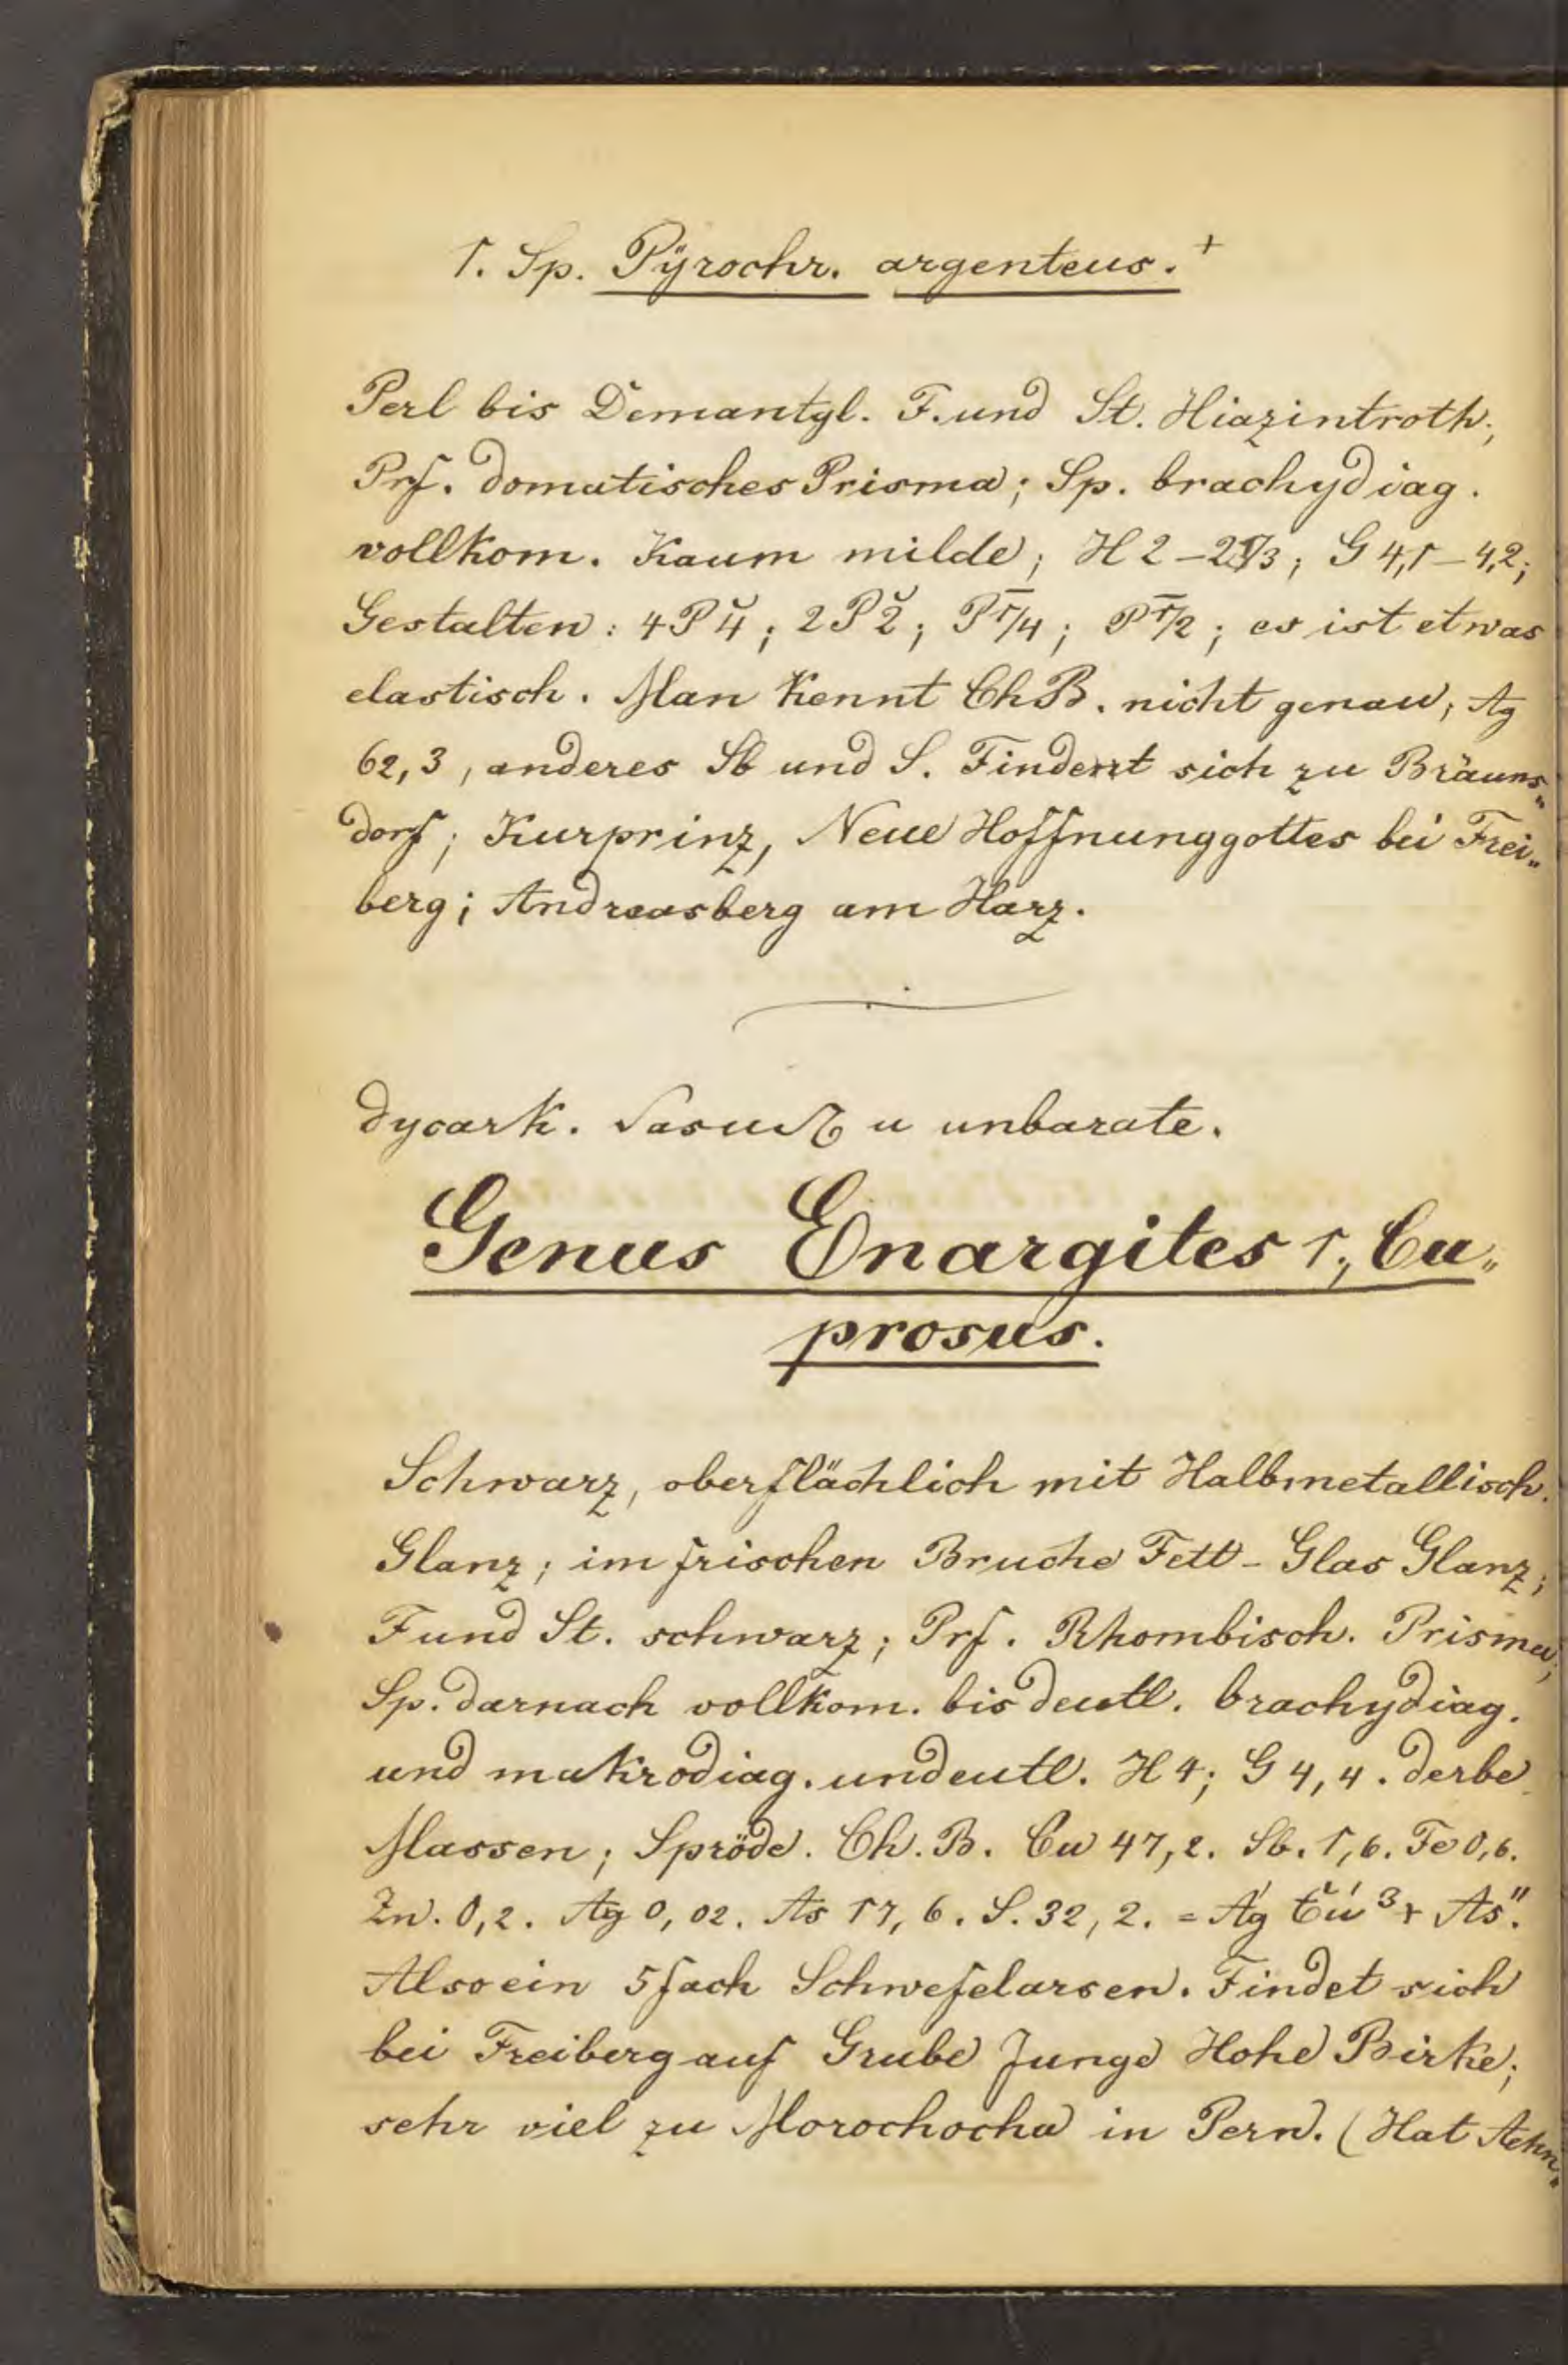 1. Sp. Pÿrochr. argenteus.+
Perl bis Demantgl. F. und St. Hiazintroth;
Prf. domatisches Prisma; Sp. brachydiag.
vollkom. Kaum milde; H 2–2 1/3; G 4,1–4,2;
Gestalten: 4P̆4; 2P̆2; P̄1/4; P̄1/2; es ist etwas
elastisch. Man kennt Ch B. nicht genau; Ag
62,3, anderes Sb und S. Findet sich zu Bräuns„
dorf; Kurprinz, Neue Hoffnung gottes bei Frei„
berg; Andreasberg am Harz.
unbarate.
Genus Enargites 1., Cu„
prosus.
Schwarz, oberflächlich mit Halbmetallisch.
Glanz; im frischen Bruche Fett-Glas Glanz;
F und St. schwarz; Prf. Rhombisch. Prisma;
Sp. darnach vollkom. bis deutl. brachydiag.
und makrodiag. undeutl. H 4; G 4,4. derbe
Massen; Spröde. Ch. B. Cu 47,2. Sb. 1,6. Fe 0,6.
Zn. 0,2. Ag 0,02. As 17,6. S. 32,2. =
Also ein 5 fach Schwefelarsen. Findet sich
bei Freiberg auf Grube Junge Hohe Birke;
sehr viel zu Morochocha in Peru. (Hat Aehn„